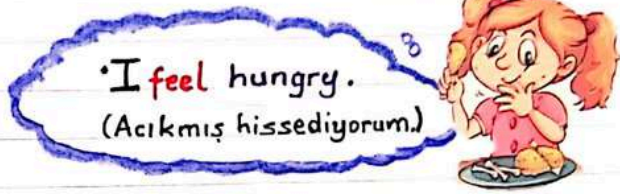 ·I feel hungry.
(Acıkmış hissediyorum.)